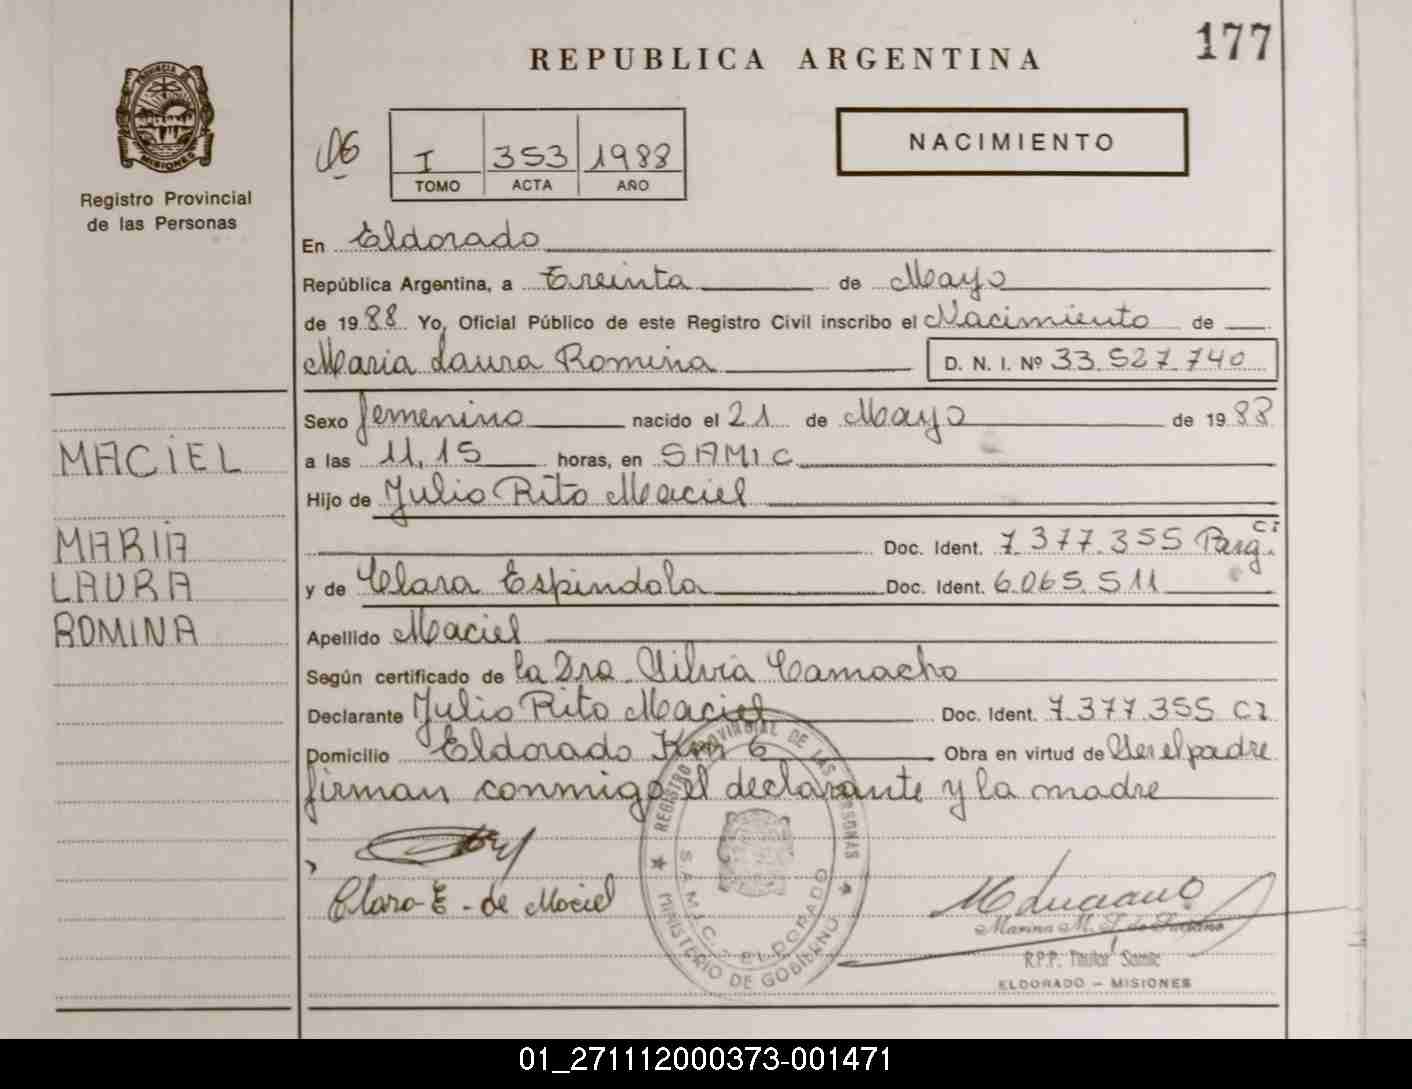 177
REPUBLICA ARGENTINA
PROVINCIA DE
MISIONES
Registro Provincial
de las Personas
06
I 353 1988
TOMO ACTA AÑO
NACIMIENTO
En Eldorado
República Argentina, a Treinta de Mayo
de 1988 Yo, Oficial Público de este Registro Civil inscribo el Nacimiento de
Maria Laura Romina D. N. I. Nº 33.527.740
Sexo femenino nacido el 21 de Mayo de 1988
MACIEL
a las 11,15 horas, en SAMIC
Hijo de Julio Rito Maciel
MARIA
Doc. Ident. 7.377.355 Parg. CI
LAURA
y de Clara Espindola Doc. Ident. 6.065.511
ROMINA
Apellido Maciel
Según certificado de la Dra. Silvia Camacho
Declarante Julio Rito Maciel Doc. Ident. 7.377.355 CI
Domicilio Eldorado Km 6 Obra en virtud de Ser el padre
firman conmigo el declarante y la madre
REGISTRO PROVINCIAL DE LAS PERSONAS
S.A.M.I.C. - ELDORADO
MINISTERIO DE GOBIERNO
Clara E. de Maciel
M Luciano
Marina M. F. de Luciano
R.P.P. Titular Samic
ELDORADO - MISIONES
01_271112000373-001471